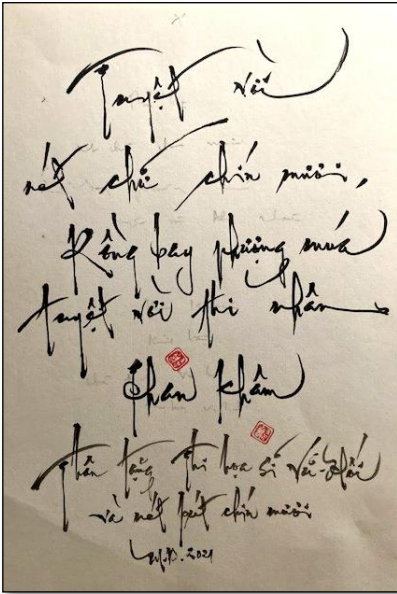 Tuyệt vời
nét chữ chín muồi,
Rồng bay phượng múa
tuyệt vời thi nhân
thán khâm
Thân tặng Thi họa sĩ Vũ Hối
và nét bút chín muồi
2021